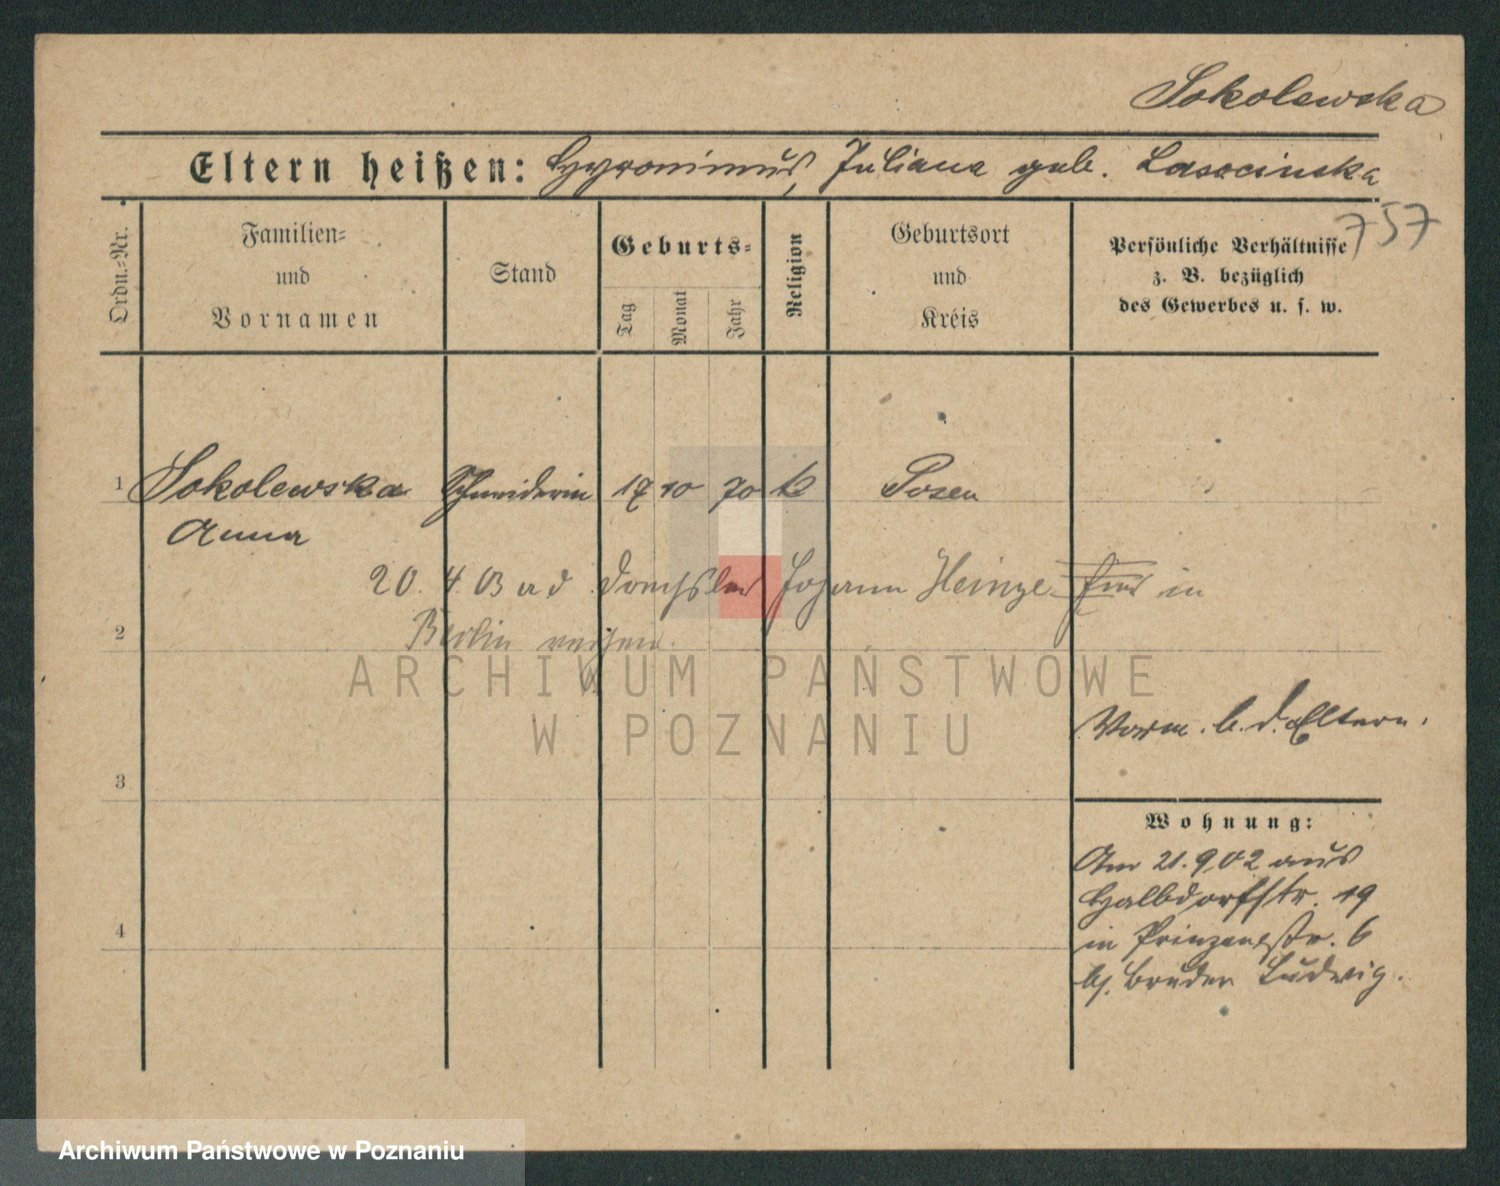 Sokolewska
Eltern heißen: Hyronimus, Juliana geb. Lasocinska
757
Ordn.-Nr.
Familien-
und
Vornamen
Stand
Geburts-
Tag
Monat
Jahr
Religion
Geburtsort
und
Kreis
Persönliche Verhältnisse
z. B. bezüglich
des Gewerbes u. s. w.
1 Sokolewska Schneiderin 17 10 70 k Posen
Anna
20. 4. 03 Drechsler Johann Heinze in
2 Berlin
ARCHIWUM PAŃSTWOWE
W POZNANIU
Vorm. b. d. Eltern.
3
Wohnung:
Am 21.9.02 aus
Halbdorfstr. 19
4 in Prinzenstr. 6
bj. Bruder Ludwig.
Archiwum Państwowe w Poznaniu